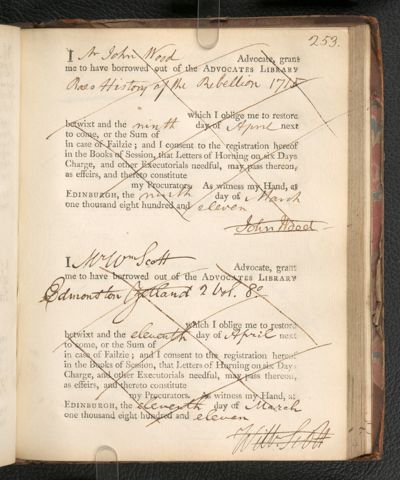 253.
I Mr John Wood Advocate, grant
me to have borrowed out of the ADVOCATES LIBRARY
Raes History of the Rebellion 1715
which I oblige me to restore
betwixt and the ninth day of April next
to come, or the Sum of
in case of Failzie; and I consent to the registration hereof
in the Books of Session, that Letters of Horning on six Days
Charge, and other Executorials needful, may pass thereon,
as effeirs, and thereto constitute
my Procurators. As witness my Hand, at
EDINBURGH, the ninth day of March
one thousand eight hundred and eleven
John Wood
I Mr Wm Scott Advocate, grant
me to have borrowed out of the ADVOCATES LIBRARY
Edmonston Zetland 2 Vol. 8o
which I oblige me to restore
betwixt and the eleventh day of April next
to come, or the Sum of
in case of Failzie; and I consent to the registration hereof
in the Books of Session, that Letters of Horning on six Days
Charge, and other Executorials needful, may pass thereon,
as effeirs, and thereto constitute
my Procurators. As witness my Hand, at
EDINBURGH, the eleventh day of March
one thousand eight hundred and eleven
Will. Scott